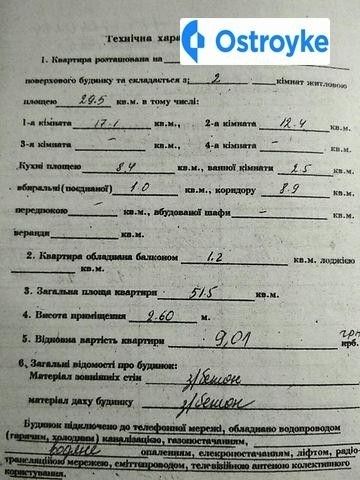 Ostroyke
Технічна хара
1. Квартира розташована на
поверхового будинку та складається з: 2 кімнат житловою
площею 29.5 кв.м. в тому числі:
1-а кімната 17.1 кв.м., 2-а кімната 12.4 кв.м.
3-я кімната – кв.м., 4-а кімната – кв.м.
Кухні площею 8,4 кв.м., ванної кімнати 2.5 кв.м.
вбиральні(поєднаної) 1.0 кв.м., коридору 8.9 кв.м.
передпокою – кв.м., вбудованої шафи – кв.м.
веранди кв.м.
2. Квартира обладнана балконом 1.2 кв.м. лоджією
кв.м.
3. Загальна площа квартири 51.5 кв.м.
4. Висота приміщення 2.60 м.
5. Відновна вартість квартири 9,01 грн крб.
6. Загальні відомості про будинок:
Матеріал зовнішніх стін з/бетон
матеріал даху будинку з/бетон
Будинок підключено до телефонної мережі, обладнано водопроводом
(гарячим, холодним) каналізацією, газопостачанням,
водяне опаленням, електропостачанням, ліфтом, радіо-
трансляційною мережею, сміттпроводом, телевізійною антеною колективного
користування.